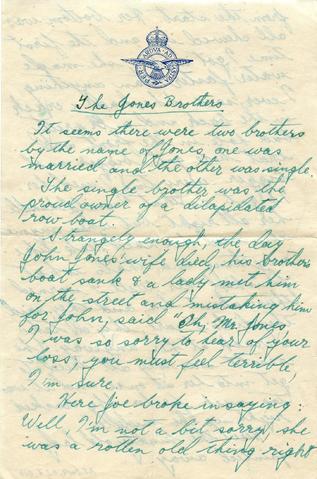 PER ARDUA AD ASTRA
The Jones Brothers
It seems there were two brothers
by the name of Jones, one was
married and the other was single.
The single brother was the
proud owner of a dilapidated
row-boat.
Strangely enough, the day
John Jones' wife died, his brother's
boat sank & a lady met him
on the street and mistaking him
for John, said "Oh, Mr. Jones,
I was so sorry to hear of your
loss, you must feel terrible,
I'm sure.
Here Joe broke in saying:
Well, I'm not a bit sorry, she
was a rotten old thing right